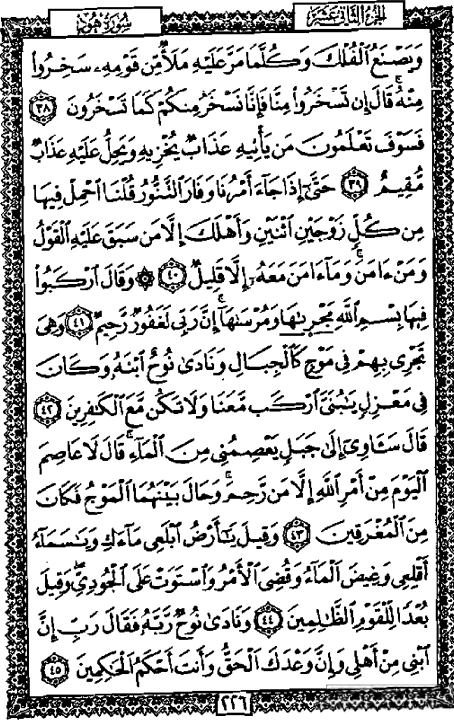 سُورَةُ هُودٍ
الجُزْءُ الثَّانِي عَشَرَ
وَيَصْنَعُ ٱلْفُلْكَ وَكُلَّمَا مَرَّ عَلَيْهِ مَلَأٌ مِّن قَوْمِهِۦ سَخِرُوا۟
مِنْهُ ۚ قَالَ إِن تَسْخَرُوا۟ مِنَّا فَإِنَّا نَسْخَرُ مِنكُمْ كَمَا تَسْخَرُونَ ٣٨
فَسَوْفَ تَعْلَمُونَ مَن يَأْتِيهِ عَذَابٌ يُخْزِيهِ وَيَحِلُّ عَلَيْهِ عَذَابٌ
مُّقِيمٌ ٣٩ حَتَّىٰٓ إِذَا جَآءَ أَمْرُنَا وَفَارَ ٱلتَّنُّورُ قُلْنَا ٱحْمِلْ فِيهَا
مِن كُلٍّ زَوْجَيْنِ ٱثْنَيْنِ وَأَهْلَكَ إِلَّا مَن سَبَقَ عَلَيْهِ ٱلْقَوْلُ
وَمَنْ ءَامَنَ ۚ وَمَآ ءَامَنَ مَعَهُۥٓ إِلَّا قَلِيلٌ ٤٠ ۞ وَقَالَ ٱرْكَبُوا۟
فِيهَا بِسْمِ ٱللَّهِ مَجْر۪ىٰهَا وَمُرْسَىٰهَآ ۚ إِنَّ رَبِّى لَغَفُورٌ رَّحِيمٌ ٤١ وَهِىَ
تَجْرِى بِهِمْ فِى مَوْجٍ كَٱلْجِبَالِ وَنَادَىٰ نُوحٌ ٱبْنَهُۥ وَكَانَ
فِى مَعْزِلٍ يَـٰبُنَىَّ ٱرْكَب مَّعَنَا وَلَا تَكُن مَّعَ ٱلْكَـٰفِرِينَ ٤٢
قَالَ سَـَٔاوِىٓ إِلَىٰ جَبَلٍ يَعْصِمُنِى مِنَ ٱلْمَآءِ ۚ قَالَ لَا عَاصِمَ
ٱلْيَوْمَ مِنْ أَمْرِ ٱللَّهِ إِلَّا مَن رَّحِمَ ۚ وَحَالَ بَيْنَهُمَا ٱلْمَوْجُ فَكَانَ
مِنَ ٱلْمُغْرَقِينَ ٤٣ وَقِيلَ يَـٰٓأَرْضُ ٱبْلَعِى مَآءَكِ وَيَـٰسَمَآءُ
أَقْلِعِى وَغِيضَ ٱلْمَآءُ وَقُضِىَ ٱلْأَمْرُ وَٱسْتَوَتْ عَلَى ٱلْجُودِىِّ ۖ وَقِيلَ
بُعْدًا لِّلْقَوْمِ ٱلظَّـٰلِمِينَ ٤٤ وَنَادَىٰ نُوحٌ رَّبَّهُۥ فَقَالَ رَبِّ إِنَّ
ٱبْنِى مِنْ أَهْلِى وَإِنَّ وَعْدَكَ ٱلْحَقُّ وَأَنتَ أَحْكَمُ ٱلْحَـٰكِمِينَ ٤٥
٢٢٦